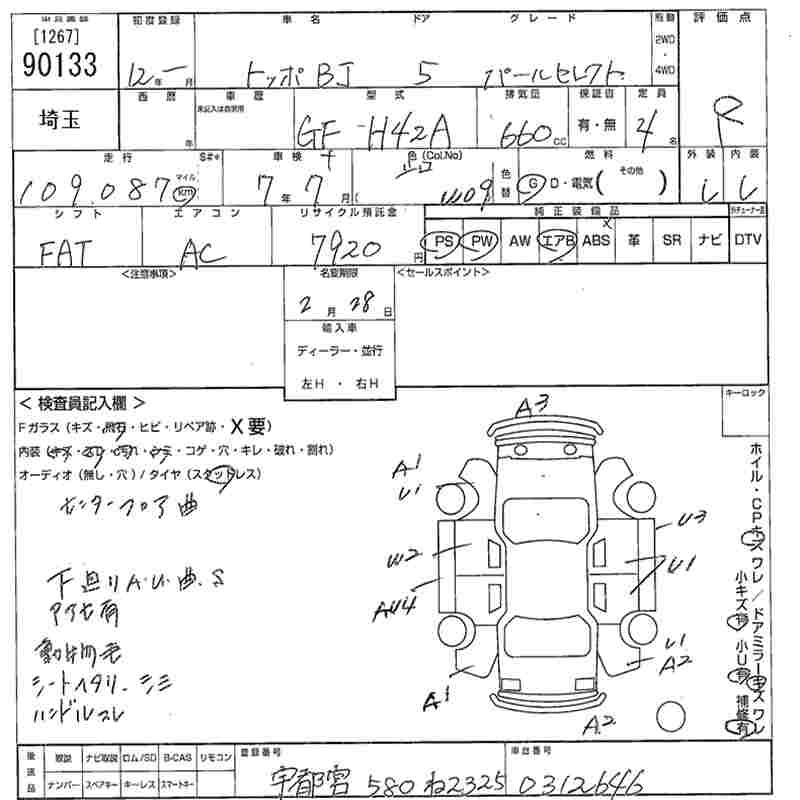 [1267]
90133
埼玉
初度登録 車名 ドア グレード 駆動 評価点
12年 ー 月 トッポBJ 5 パールセレクト 2WD・4WD R
西暦 年 車歴 型式 排気量 保証書 定員
未記入は自家用
GF-H42A 660cc 有・無 4名
走行 S#* 車検 色(Col.No) 色替 燃料 外装 内装
109,087 マイル km 7年7月( W09 G・D・電気( その他 )
シフト エアコン リサイクル預託金 純正装備品
FAT AC 7920円 PS PW AW エアB ABS 革 SR ナビ DTV
<注意事項> 名変期限 <セールスポイント>
2月28日
輸入車
ディーラー・並行
左H・右H
キーロック
< 検査員記入欄 >
Fガラス(キズ・飛石・ヒビ・リペア跡・X要)
内装(キズ・スレ・汚れ・シミ・コゲ・穴・キレ・破れ・割れ)
オーディオ(無し・穴)/タイヤ(スタッドレス)
センターフロア曲
下廻りA.U.曲.S
アクセ有
動物毛
シートヘタリ・シミ
ハンドルスレ
A3
A1
U1
U3
W2
U1
AU4
U1
A2
A1
A2
ホイル・CPキズワレ/ドアミラーキズワレ
小キズ有 小U有 補修有
後送品 取説 ナビ取説 ロム/SD B-CAS リモコン 登録番号 車台番号
ナンバー スペアキー キーレス スマートキー 宇都宮 580 ね2325 0312646